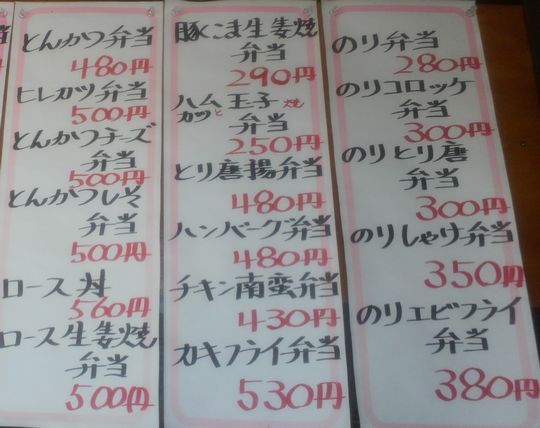 とんかつ弁当
480円
ヒレカツ弁当
500円
とんかつチーズ
弁当
500円
とんかつしそ
弁当
500円
ロース丼
560円
ロース生姜焼
弁当
500円
豚こま生姜焼
弁当
290円
ハム玉子焼
カツと
弁当
250円
とり唐揚弁当
480円
ハンバーグ弁当
480円
チキン南蛮弁当
430円
カキフライ弁当
530円
のり弁当
280円
のりコロッケ
弁当
300円
のりとり唐
弁当
300円
のりしゃけ弁当
350円
のりエビフライ
弁当
380円